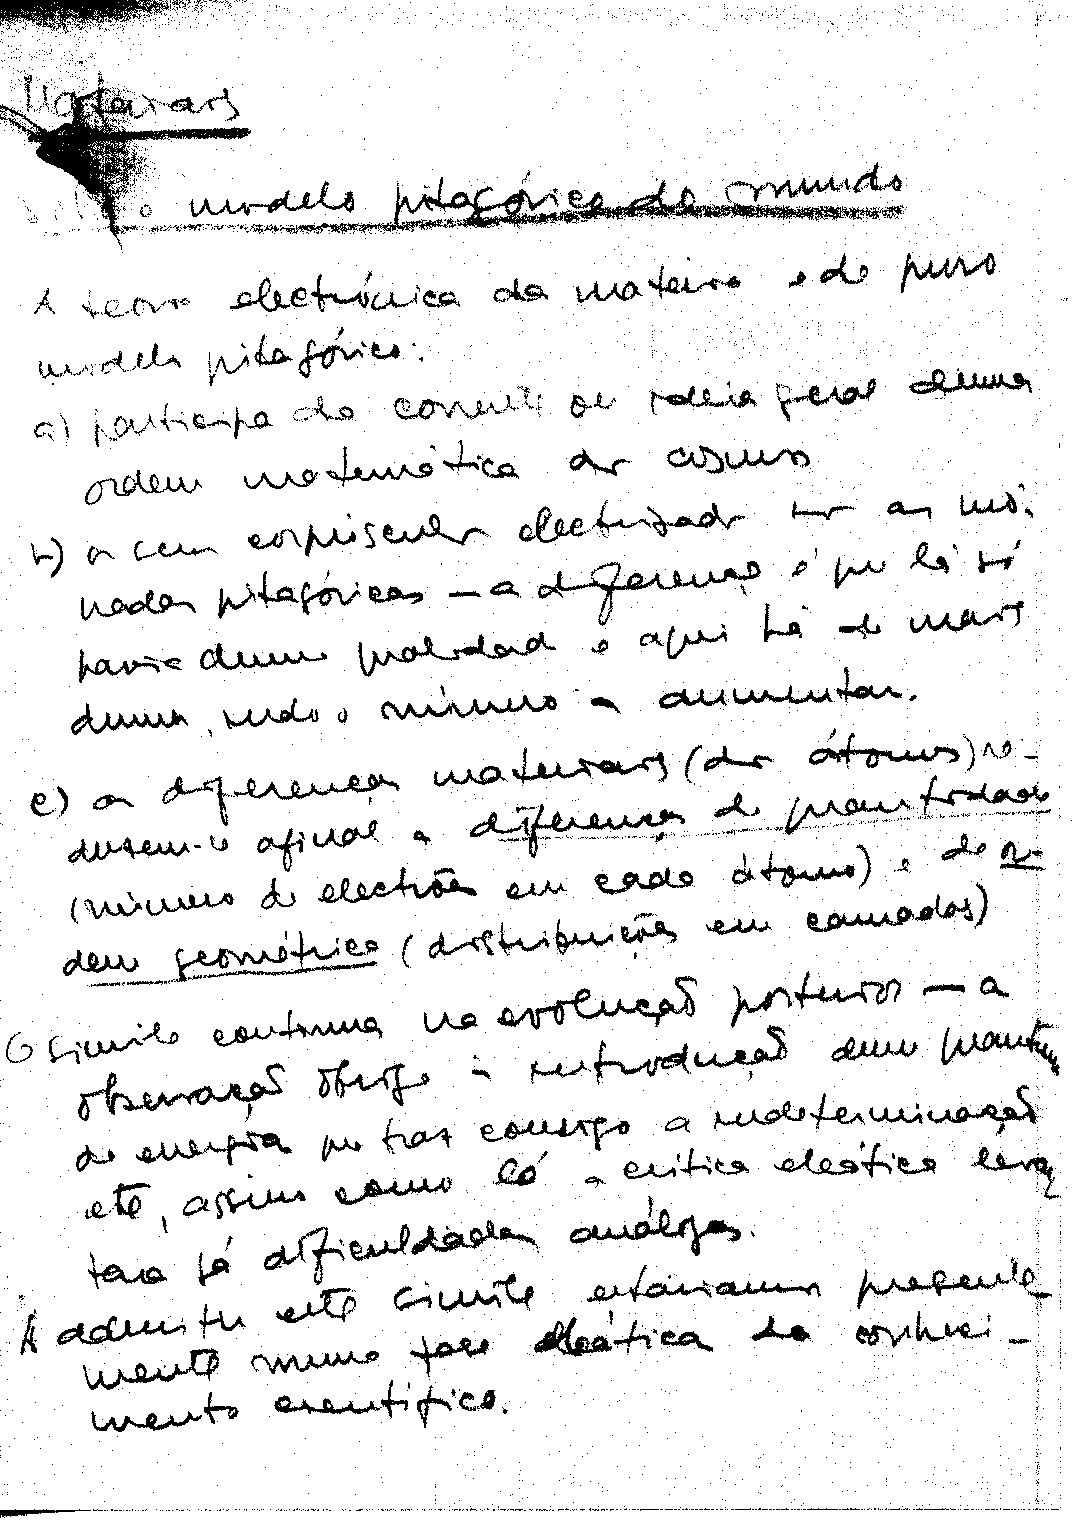 o modelo pitagórico do mundo
A teoria electrónica da matéria é de puro
modelo pitagórico:
a) participa da corrente ou ideia geral duma
ordem matemática do cosmos
b) o seu corpúsculo electrizado são as mó-
nadas pitagóricas — a diferença é que lá só
havia duma qualidade e aqui há de mais
duma, sendo o número a aumentar.
c) as diferenças materiais (dos átomos) re-
duzem-se afinal a diferenças de quantidade
(número de electrões em cada átomo) e de or-
dem geométrica (distribuições em camadas)
O símile continua na evolução posterior — a
observação obriga à introdução dum quantum
de energia que traz consigo a indeterminação
etc, assim como lá a crítica eleática levan
tara já dificuldades análogas.
A admitir este símile estaríamos presente
mente numa fase eleática do conheci-
mento científico.